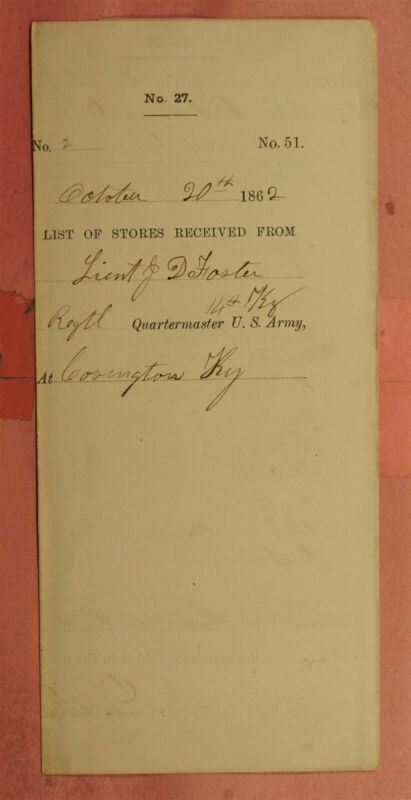 No. 27.
No. 2 No. 51.
October 20th 1862
LIST OF STORES RECEIVED FROM
Lieut J D Foster
14th Ky
Regtl Quartermaster U. S. Army,
At Covington Ky